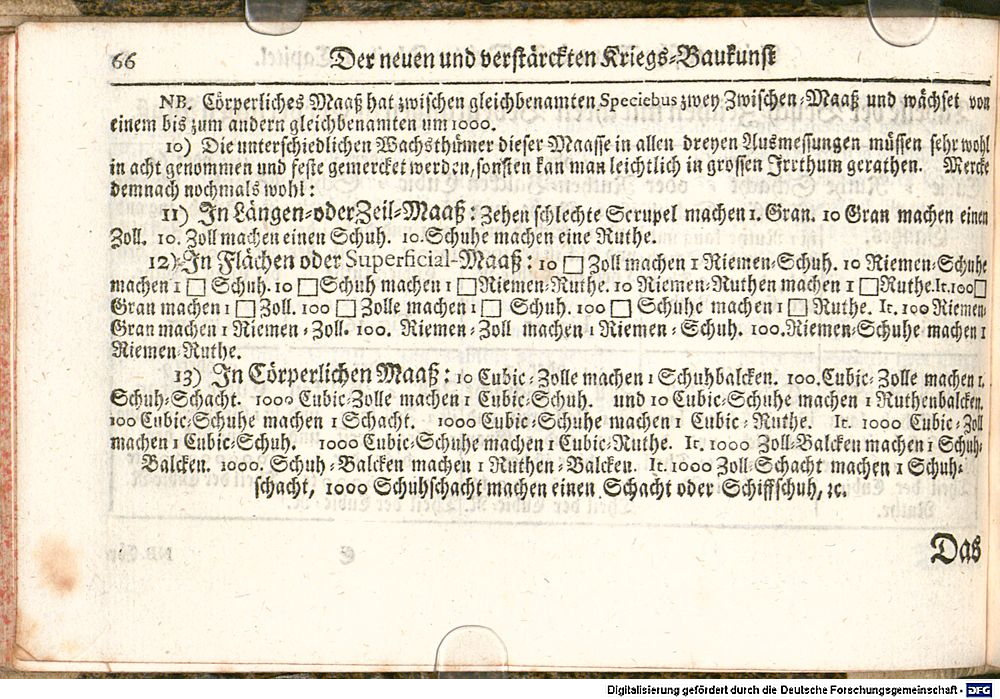 66 Der neuen und verstärckten Kriegs-Baukunst
NB. Cörperliches Maaß hat zwischen gleichbenamten Speciebus zwey Zwischen-Maaß und wächset von
einem bis zum andern gleichbenamten um 1000.
10) Die unterschiedlichen Wachsthümer dieser Maasse in allen dreyen Ausmessungen müssen sehr wohl
in acht genommen und feste gemercket werden, sonsten kan man leichtlich in grossen Irrthum gerathen. Mercke
demnach nochmals wohl:
11) In Längen-oder Zeil-Maaß: Zehen schlechte Scrupel machen 1. Gran. 10 Gran machen einen
Zoll. 10. Zoll machen einen Schuh. 10. Schuhe machen eine Ruthe.
12) In Flächen oder Superficial-Maaß: 10 □ Zoll machen 1 Riemen-Schuh. 10 Riemen-Schuhe
machen 1 □ Schuh. 10 □ Schuh machen 1 □ Riemen-Ruthe. 10 Riemen-Ruthen machen 1 □ Ruthe. It. 100 □
Gran machen 1 □ Zoll. 100 □ Zolle machen 1 □ Schuh. 100 □ Schuhe machen 1 □ Ruthe. It. 100 Riemen-
Gran machen 1 Riemen-Zoll. 100. Riemen-Zoll machen 1 Riemen-Schuh. 100. Riemen-Schuhe machen 1
Riemen-Ruthe.
13) In Cörperlichen Maaß: 10 Cubic-Zolle machen 1 Schuhbalcken. 100. Cubic-Zolle machen 1.
Schuh-Schacht. 1000 Cubic-Zolle machen 1 Cubic-Schuh. und 10 Cubic-Schuhe machen 1 Ruthenbalcken.
100 Cubic-Schuhe machen 1 Schacht. 1000 Cubic-Schuhe machen 1 Cubic-Ruthe. It. 1000 Cubic-Zoll
machen 1 Cubic-Schuh. 1000 Cubic-Schuhe machen 1 Cubic-Ruthe. It. 1000 Zoll-Balcken machen 1 Schuh-
Balcken. 1000. Schuh-Balcken machen 1 Ruthen-Balcken. It. 1000 Zoll-Schacht machen 1 Schuh-
schacht, 1000 Schuhschacht machen einen Schacht oder Schiffschuh, ꝛc.
Das
Digitalisierung gefördert durch die Deutsche Forschungsgemeinschaft - DFG